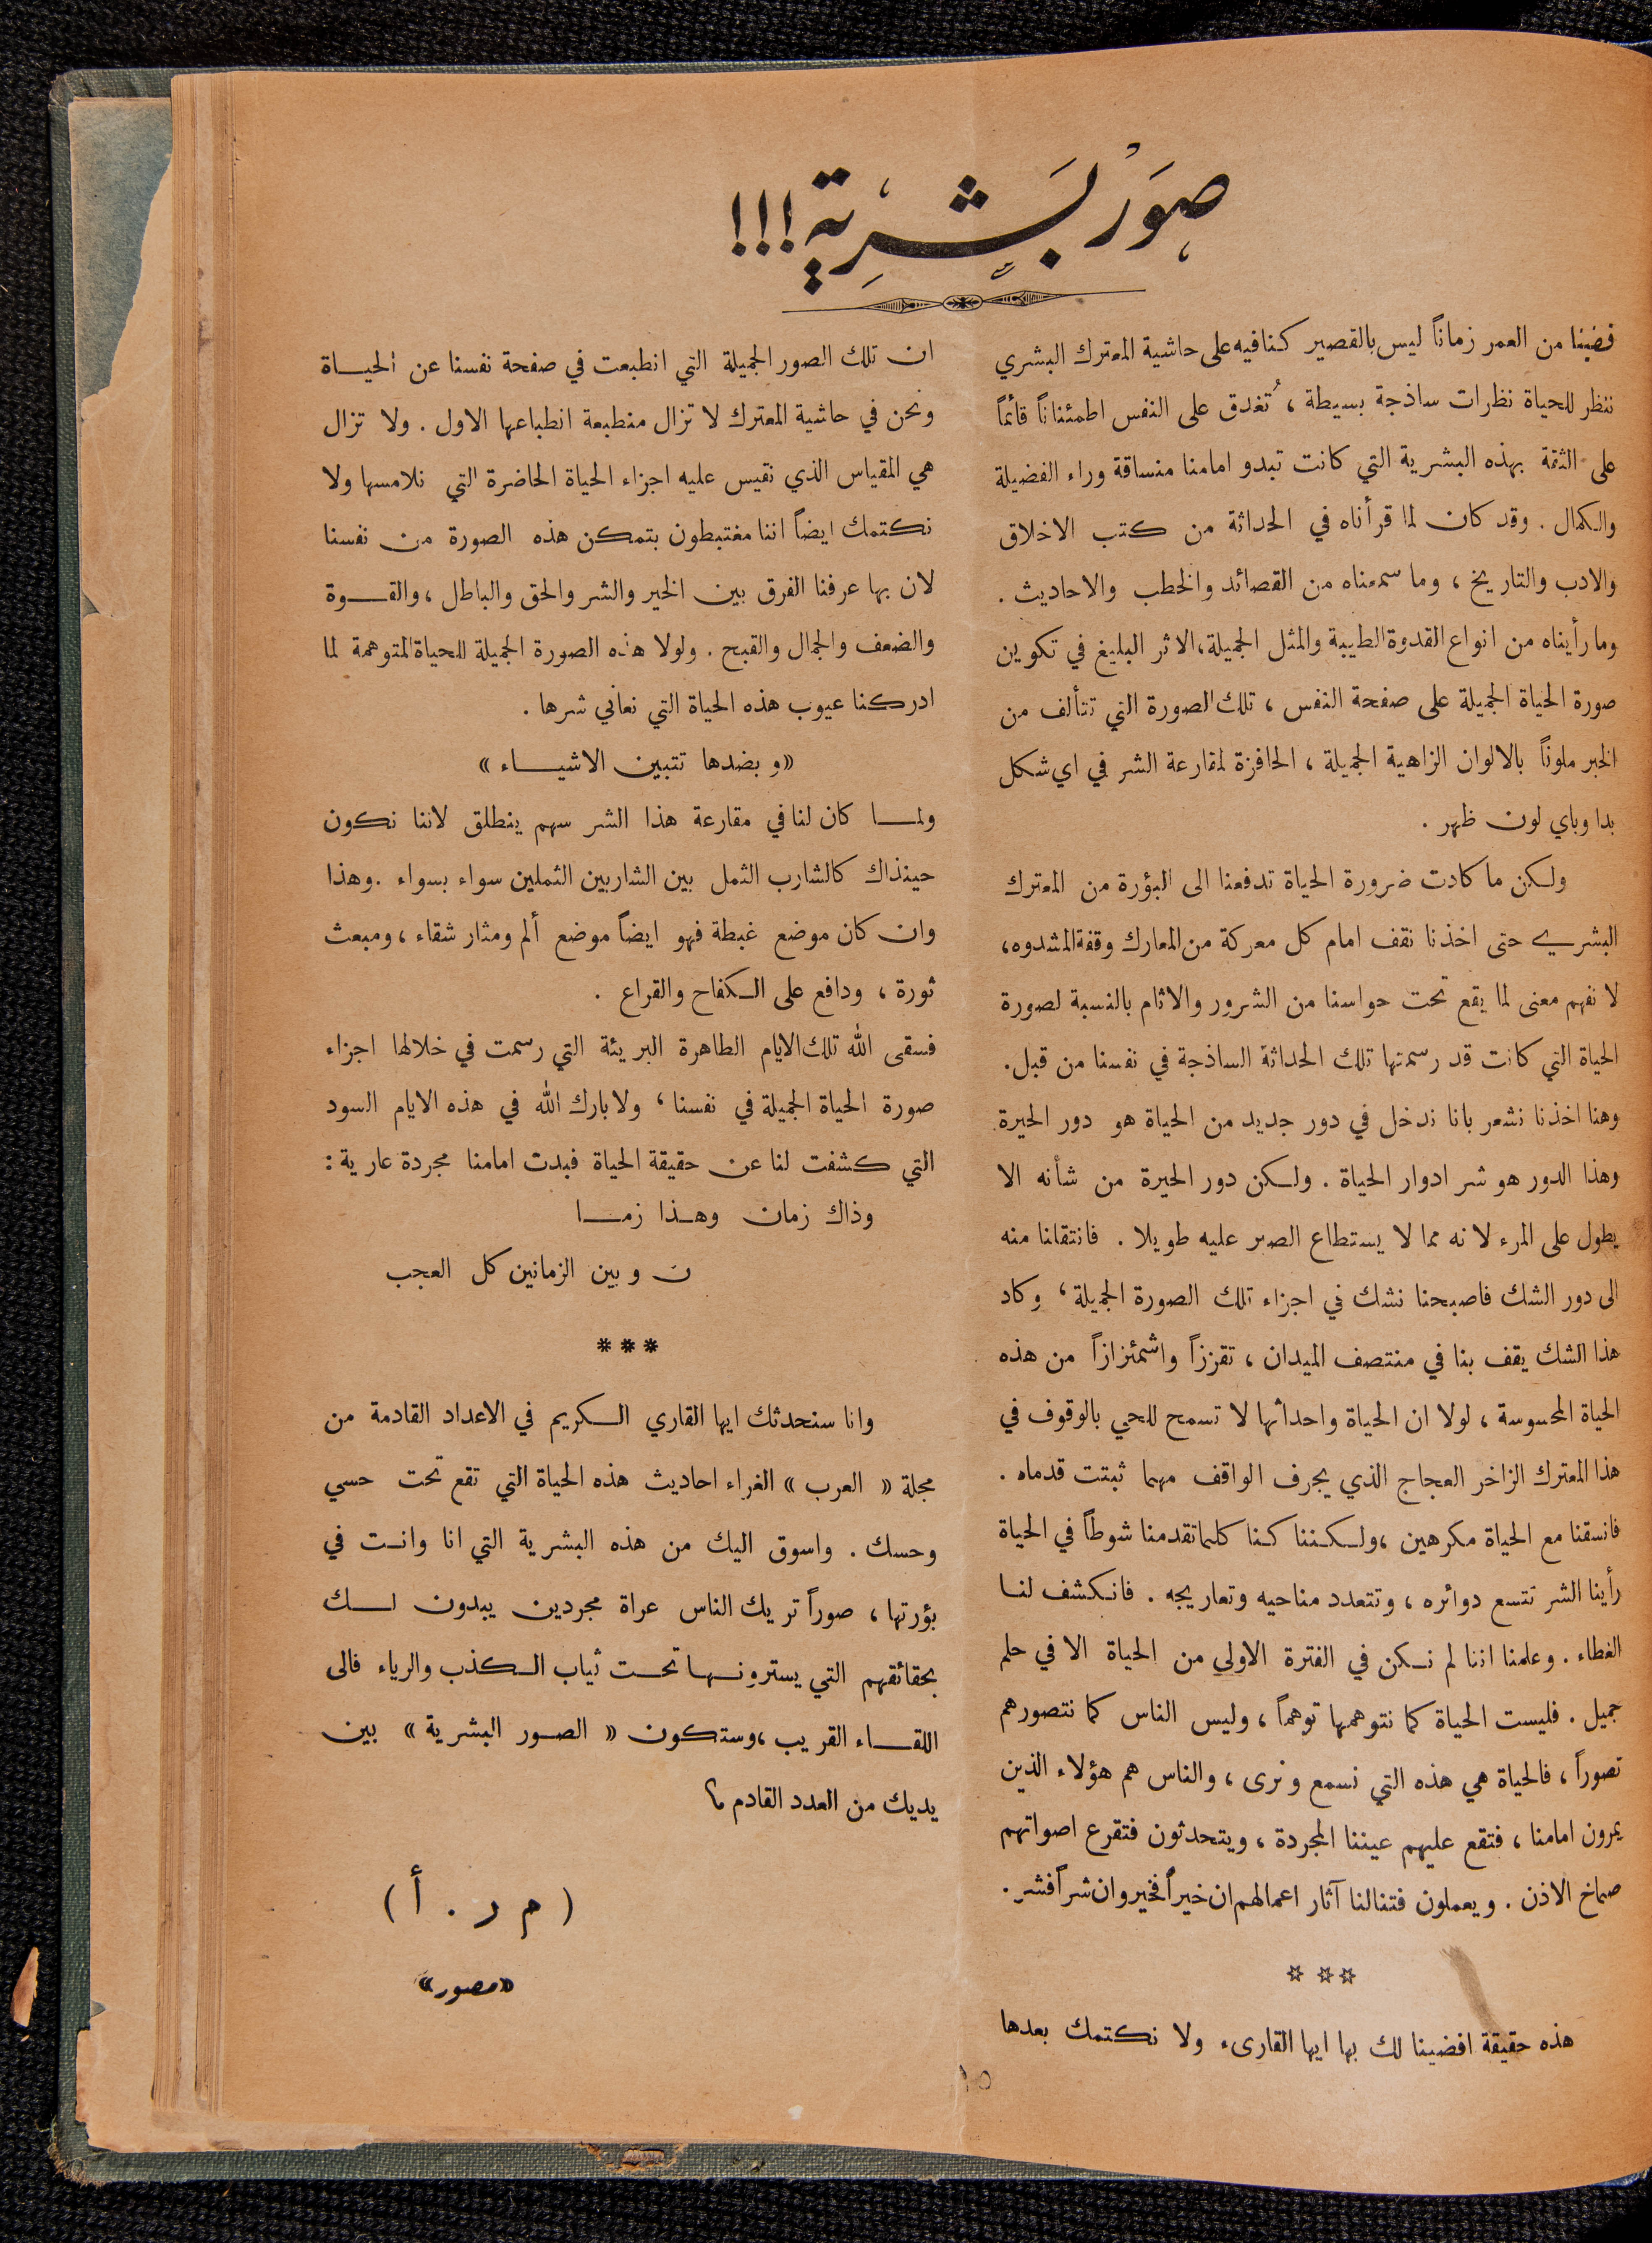 صُوَرْ بَشَرِيّة!!!
قضينا من العمر زماناً ليس بالقصير كنا فيه على حاشية المعترك البشري
ننظر للحياة نظرات ساذجة بسيطة، تُغدق على النفس اطمئناناً قائماً
على الثقة بهذه البشرية التي كانت تبدو امامنا منساقة وراء الفضيلة
والكمال. وقد كان لما قرأناه في الحداثة من كتب الاخلاق
والادب والتاريخ، وما سمعناه من القصائد والخطب والاحاديث.
وما رأيناه من انواع القدوة الطيبة والمثل الجميلة، الاثر البليغ في تكوين
صورة الحياة الجميلة على صفحة النفس، تلك الصورة التي تتألف من
الخير ملوناً بالالوان الزاهية الجميلة، الحافزة لمقارعة الشر في اي شكل
بدا وباي لون ظهر.
ولكن ما كادت ضرورة الحياة تدفعنا الى البؤرة من المعترك
البشري حتى اخذنا نقف امام كل معركة من المعارك وقفة المشدوه،
لا نفهم معنى لما يقع تحت حواسنا من الشرور والاثام بالنسبة لصورة
الحياة التي كانت قد رسمتها تلك الحداثة الساذجة في نفسنا من قبل.
وهنا اخذنا نشعر بانا ندخل في دور جديد من الحياة هو دور الحيرة
وهذا الدور هو شر ادوار الحياة. ولكن دور الحيرة من شأنه الا
يطول على المرء لانه مما لا يستطاع الصبر عليه طويلا. فانتقلنا منه
الى دور الشك فاصبحنا نشك في اجزاء تلك الصورة الجميلة، وكاد
هذا الشك يقف بنا في منتصف الميدان، تقززاً واشمئزازاً من هذه
الحياة المحسوسة، لولا ان الحياة واحداثها لا تسمح للحي بالوقوف في
هذا المعترك الزاخر العجاج الذي يجرف الواقف مهما ثبتت قدماه.
فانسقنا مع الحياة مكرهين، ولكننا كنا كلما تقدمنا شوطاً في الحياة
رأينا الشر تتسع دوائره، وتتعدد مناحيه وتعاريجه. فانكشف لنا
الغطاء. وعلمنا اننا لم نكن في الفترة الاولى من الحياة الا في حلم
جميل. فليست الحياة كما نتوهمها توهماً، وليس الناس كما نتصورهم
تصوراً، فالحياة هي هذه التي نسمع ونرى، والناس هم هؤلاء الذين
يمرون امامنا، فتقع عليهم عيننا المجردة، ويتحدثون فتقرع اصواتهم
صماخ الاذن. ويعملون فتنالنا آثار اعمالهم ان خيراً فخير وان شراً فشر.
☆ ☆ ☆
هذه حقيقة افضينا لك بها ايها القارىء ولا نكتمك بعدها
ان تلك الصور الجميلة التي انطبعت في صفحة نفسنا عن الحياة
ونحن في حاشية المعترك لا تزال منطبعة انطباعها الاول. ولا تزال
هي المقياس الذي نقيس عليه اجزاء الحياة الحاضرة التي نلامسها ولا
نكتمك ايضاً اننا مغتبطون بتمكن هذه الصورة من نفسنا
لان بها عرفنا الفرق بين الخير والشر والحق والباطل، والقوة
والضعف والجمال والقبح. ولولا هذه الصورة الجميلة للحياة المتوهمة لما
ادركنا عيوب هذه الحياة التي نعاني شرها.
«وبضدها تتبين الاشياء»
ولما كان لنا في مقارعة هذا الشر سهم ينطلق لاننا نكون
حينذاك كالشارب الثمل بين الشاربين الثملين سواء بسواء. وهذا
وان كان موضع غبطة فهو ايضاً موضع ألم ومثار شقاء، ومبعث
ثورة، ودافع على الكفاح والقراع.
فسقى الله تلك الايام الطاهرة البريئة التي رسمت في خلالها اجزاء
صورة الحياة الجميلة في نفسنا، ولا بارك الله في هذه الايام السود
التي كشفت لنا عن حقيقة الحياة فبدت امامنا مجردة عارية:
وذاك زمان وهذا زما
ن وبين الزمانين كل العجب
***
وانا سنحدثك ايها القاري الكريم في الاعداد القادمة من
مجلة «العرب» الغراء احاديث هذه الحياة التي تقع تحت حسي
وحسك. واسوق اليك من هذه البشرية التي انا وانت في
بؤرتها، صوراً تريك الناس عراة مجردين يبدون لك
بحقائقهم التي يسترونها تحت ثياب الكذب والرياء فالى
اللقاء القريب، وستكون «الصور البشرية» بين
يديك من العدد القادم؟
(م ر. أ)
«مصور»
١٥